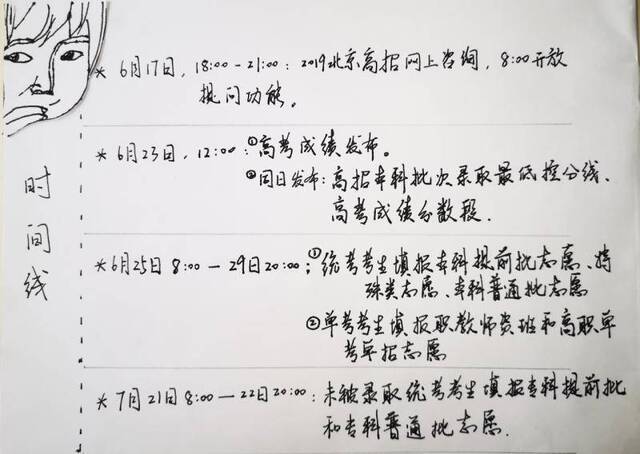 时间线
* 6月17日，18:00-21:00：2019北京高招网上咨询，8:00开放
提问功能。
* 6月23日，12:00：①高考成绩发布。
②同日发布：高招本科批次录取最低控分线、
高考成绩分数段.
* 6月25日 8:00 — 29日20:00：①统考考生填报本科提前批志愿、特
殊类志愿、本科普通批志愿
②单考考生填报职教师资班和高职单
考单招志愿
* 7月21日8:00 — 22日20:00：未被录取统考考生填报专科提前批
和专科普通批志愿.